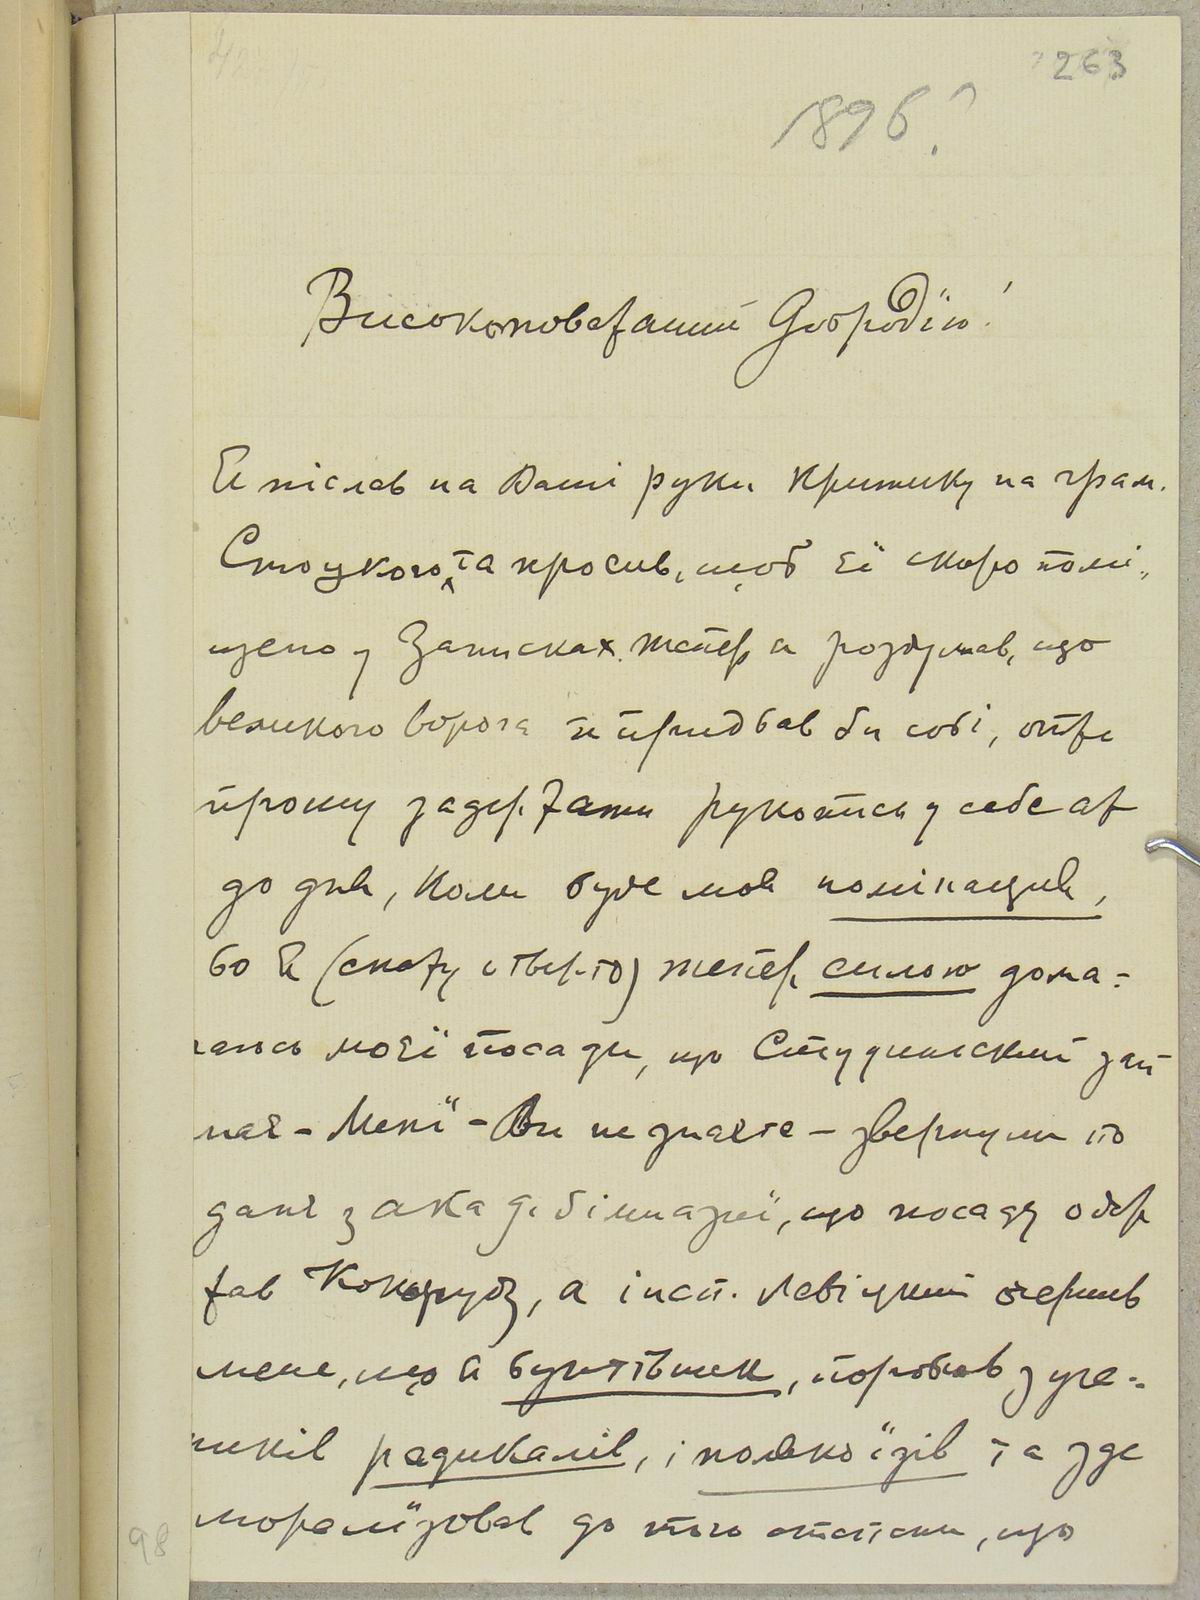 263
1896?
Високоповажаний Добродїю!
Я післав на Ваші руки критику на грам.
Стоцкого, та просив, щоб її скоро помі„
щено у Записках. Тепер я роздумав, що
великого ворога я придбав би собі, отже
прошу задержати рукопись у себе аж
до дня, коли буде моя номінация,
бо я (скажу отверто) тепер силою дома-
гаюсь моєї посади, що Студиньский зай
має – Менї – Ви не знаєте – звернули по
данє з акад. гімназиї, що посаду одер
жав Кокорудз, а інсп. Левіцкий очернив
мене, що я бунтівник, поробив з уче-
ників радикалів, і поляко їзів та зде
моралїзовав до того степени, що
98